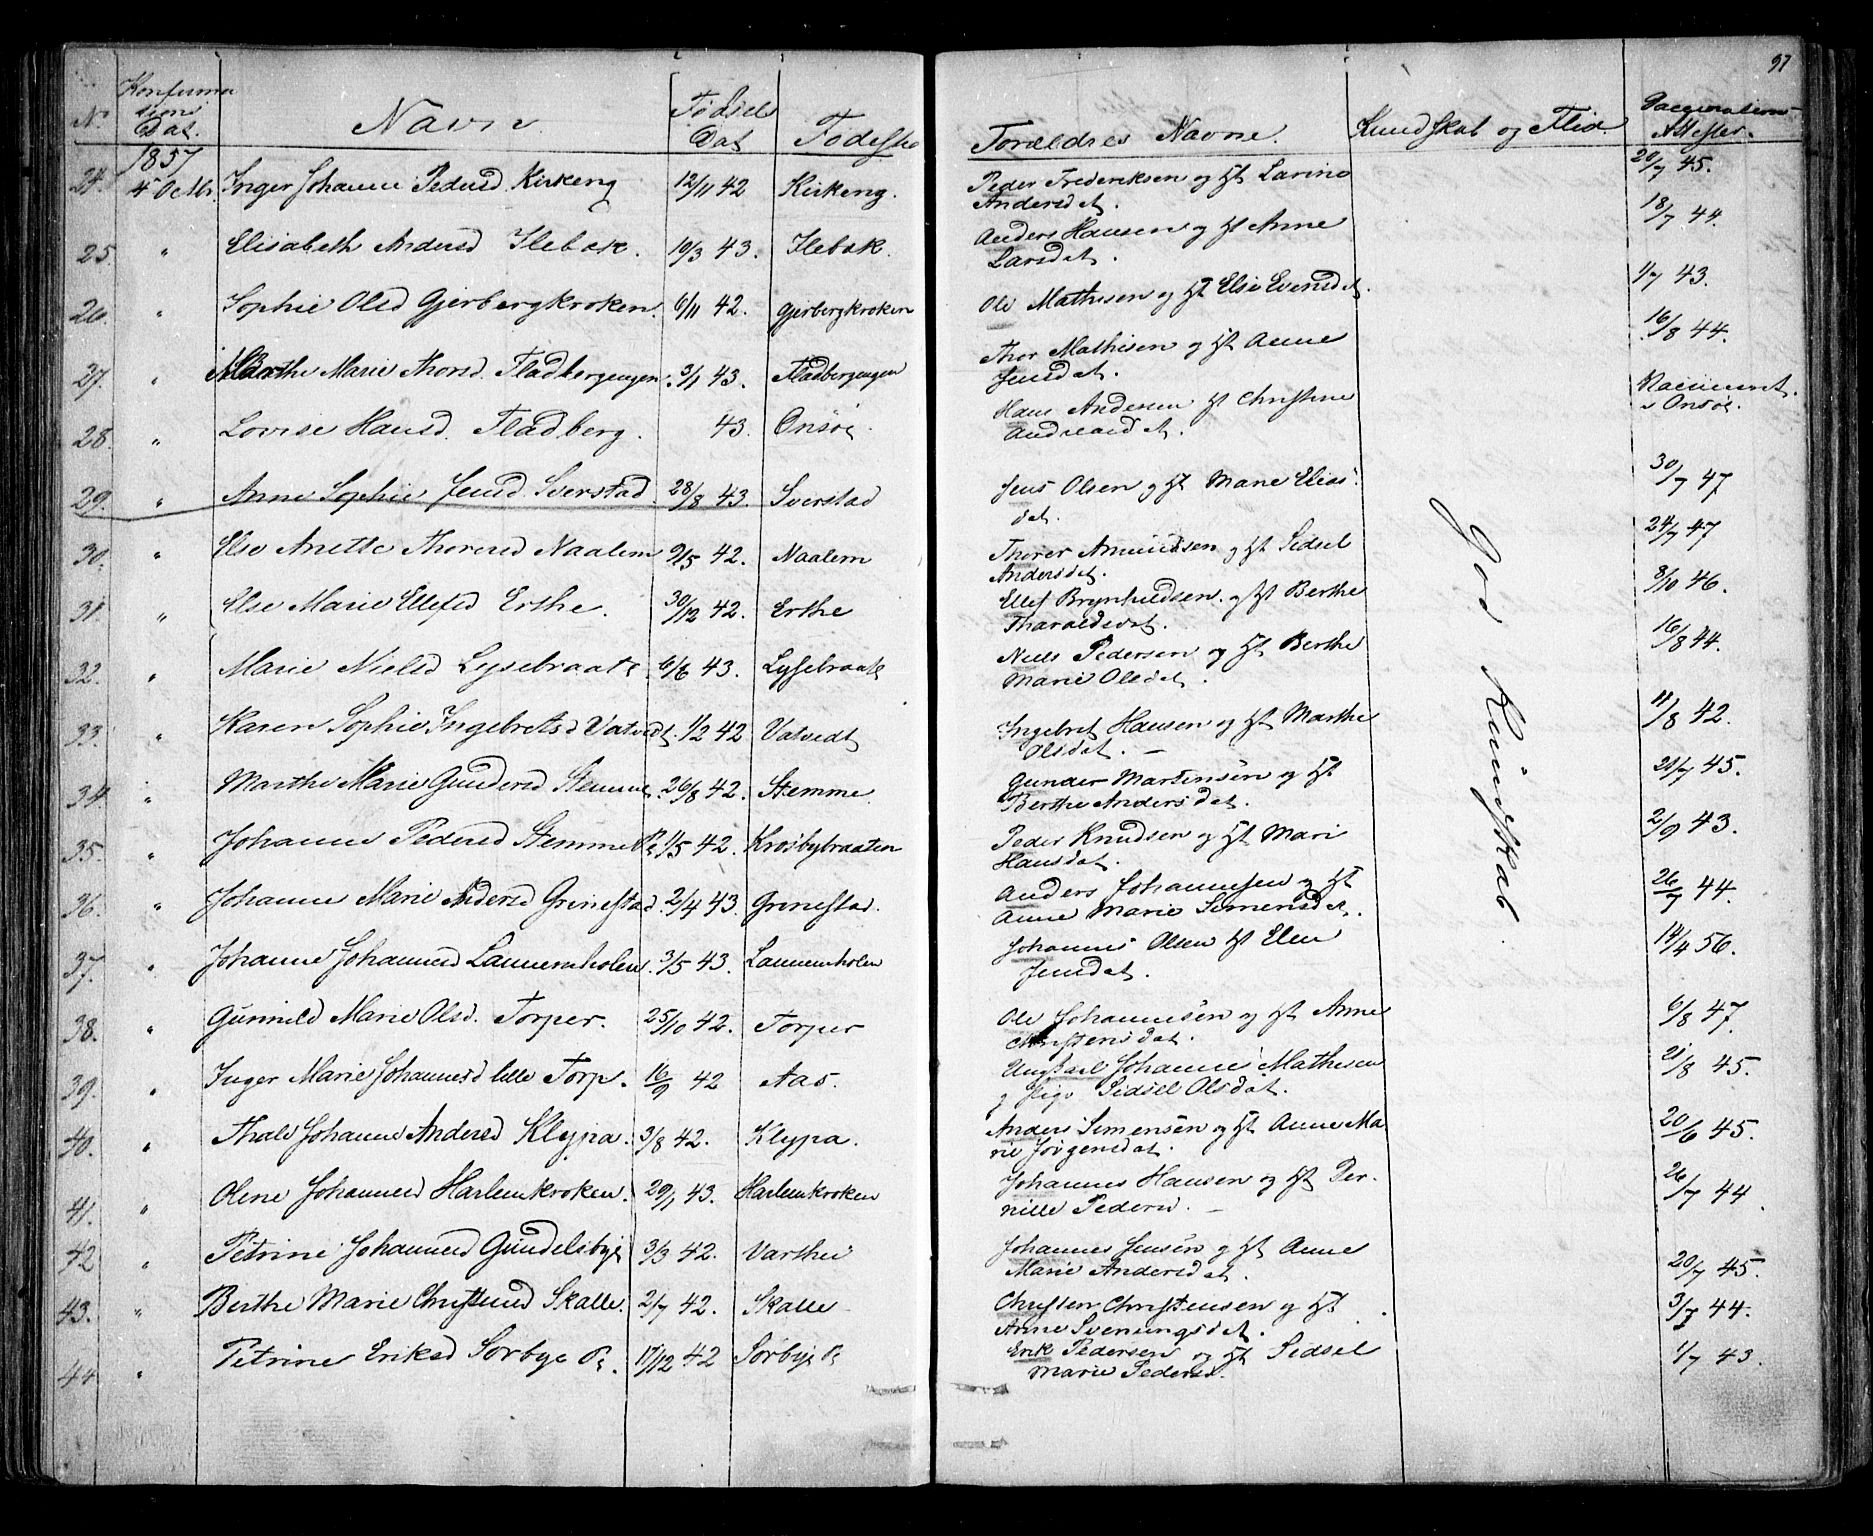 97
No Konfirma
tions
Dat. Navn Fødsels
Dat Fødested Forældres Navne. Kundskab og Flid Vaccinations
Attester.
1857
24. 4 Octbr. Inger Johanne Pedersd. Kirkeng 12/11 42 Kirkeng. Peder Frederiksen og Hst Larine 20/7 45.
Andersdat.
25. " Elisabeth Andersd Ilebæk. 10/3 43. Ilebæk. Anders Hansen og Hst Anne 18/7 44.
Larsdat.
26. " Sophie Olsd Gjerbergkroken. 6/11 42. Gjerbergkroken Ole Mathisen og Hst Else Evensdat. 1/7 43.
27. " Marthe Marie Thorsd. Fladbergengen. 3/1 43. Fladbergengen Thor Mathisen og Hst Anne 16/8 44.
Jensdat.
28. " Lovise Hansd. Fladberg. 43. Onsøe. Hans Andersen Hst Christine Vaccineret
Andreasdat. i Onsøe.
29. " Anne Sophie Jensd Sverstad. 28/8 43. Sverstad Jens Olsen og Hst Marie Elias 30/7 47
dat.
30. " Else Anette Thoresd Naalem 9/5 42. Naalem Thorer Amundsen og Hst Sidsel 24/7 47
Andersdat.
31. " Else Marie Ellefsd Erthe. 30/12 42. Erthe Ellef Brynhildsen. og Hst Berthe 8/10 46.
Tharaldsdat.
32. " Marie Nielsd Lysebraate. 6/6 43. Lyssebraate Niels Pedersen og Hst Berthe 16/8 44.
Marie Olsdat.
33. " Karen Sophie Ingebretsd Vatvedt. 1/2 42 Vatvedt Ingebret Hansen og Hst Marthe 11/8 42.
Olsdat. —
34. " Marthe Marie Gundersd Stemme. 26/8 42. Stemme. Gunder Martensen og Hst 21/7 45.
Berthe Andersdat.
35. " Johanne Pedersd Stemme Pl. 1/5 42. Krosbybraaten Peder Knudsen og Hst Mari 2/9 43.
Hansdat.
36. " Johanne Marie Andersd Grinestad. 2/4 43. Grinestad. Anders Johannesen og Hst 26/7 44.
Anne Marie Simensdat.
37. " Johanne Johannesd Lannemholen. 3/5 43. Lannemholen Johannes Olsen Hst Elen 14/4 56.
Jensdat.
38. " Gunnild Marie Olsd. Torper. 25/10 42. Torper Ole Johannesen og Hst Anne 6/8 47.
Christensdat.
39. " Inger Marie Johannesd lille Torp. 16/9 42 Aas. Ungkarl Johannes Mathesen 21/8 45.
og Pige Sidsel Olsdat.
40. " Thale Johanne Andersd Klypa. 3/8 42. Klypa. Anders Simensen og Hst Anne Ma 20/6 45.
rie Jørgensdat.
41. " Olene Johannesd Harlemkroken. 29/1 43. Harlemkroken Johannes Hansen og Hst Per- 26/7 44
nille Pedersd. —
42 " Petrine Johannesd Gundelsbye 3/3 42. Varthei Johannes Jensen og Hst Anne 20/7 45.
Marie Andersdat.
43. " Berthe Marie Christensd Skalle. 2/7 42. Skalle Christen Christensen og Hst 3/7 44.
Anne Svenungsdat.
44 " Petrine Eriksd Sørbye Pl. 17/12 42 Sørbye Pl Erik Pedersen og Hst Sidsel 1/7 43.
Marie Pedersd.
God Kundskab.